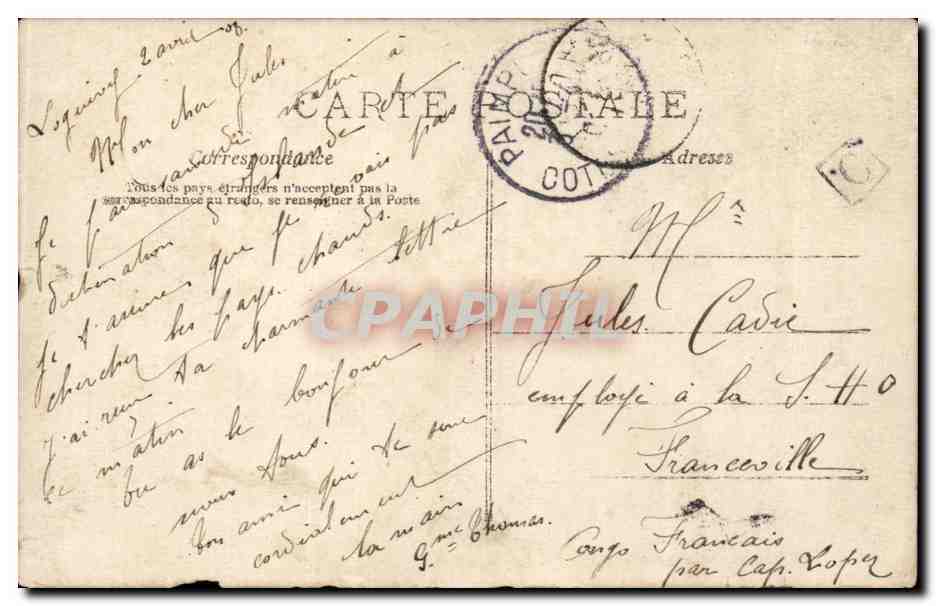 Loguivy 2 avril 08.
Mon cher Jules
CARTE POSTALE
Correspondance
Tous les pays étrangers n'acceptent pas la
correspondance au recto, se renseigner à la Poste
Je pars samedi matin à
destination d'Islande et
je t'assures que je ne vais pas
chercher les pays chauds.
J'ai reçu ta charmante lettre
ce matin.
tu as le bonjour de
nous tous.
ton ami qui te serre
cordialement
la main
Gme Thomas.
PAIMP
20
COT
C
Adresse
Mr
Jules Cadic
employé à la S. HO
Franceville
Congo Francais
par Cap. Lopez
CPARHIL